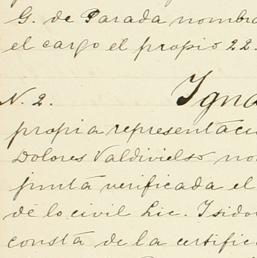 G. de Parada nombra
el cargo el propio 22.
N. 2. Igna
propia representaci
Dolores Valdivielso no
junta verificada el
de lo civil Lic. Isido
consta de la certific